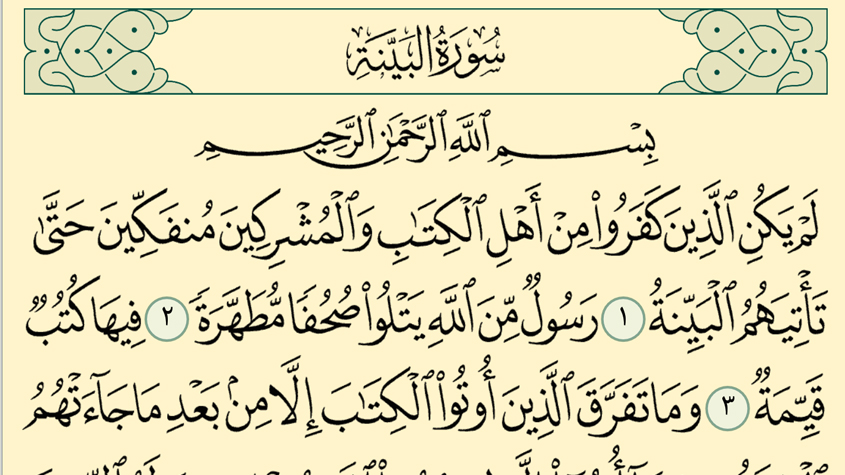 سُورَةُ البَيِّنَةِ
بِسۡمِ ٱللَّهِ ٱلرَّحۡمَٰنِ ٱلرَّحِيمِ
لَمۡ يَكُنِ ٱلَّذِينَ كَفَرُواْ مِنۡ أَهۡلِ ٱلۡكِتَٰبِ وَٱلۡمُشۡرِكِينَ مُنفَكِّينَ حَتَّىٰ
تَأۡتِيَهُمُ ٱلۡبَيِّنَةُ ١ رَسُولٞ مِّنَ ٱللَّهِ يَتۡلُواْ صُحُفٗا مُّطَهَّرَةٗ ٢ فِيهَا كُتُبٞ
قَيِّمَةٞ ٣ وَمَا تَفَرَّقَ ٱلَّذِينَ أُوتُواْ ٱلۡكِتَٰبَ إِلَّا مِنۢ بَعۡدِ مَا جَآءَتۡهُمُ